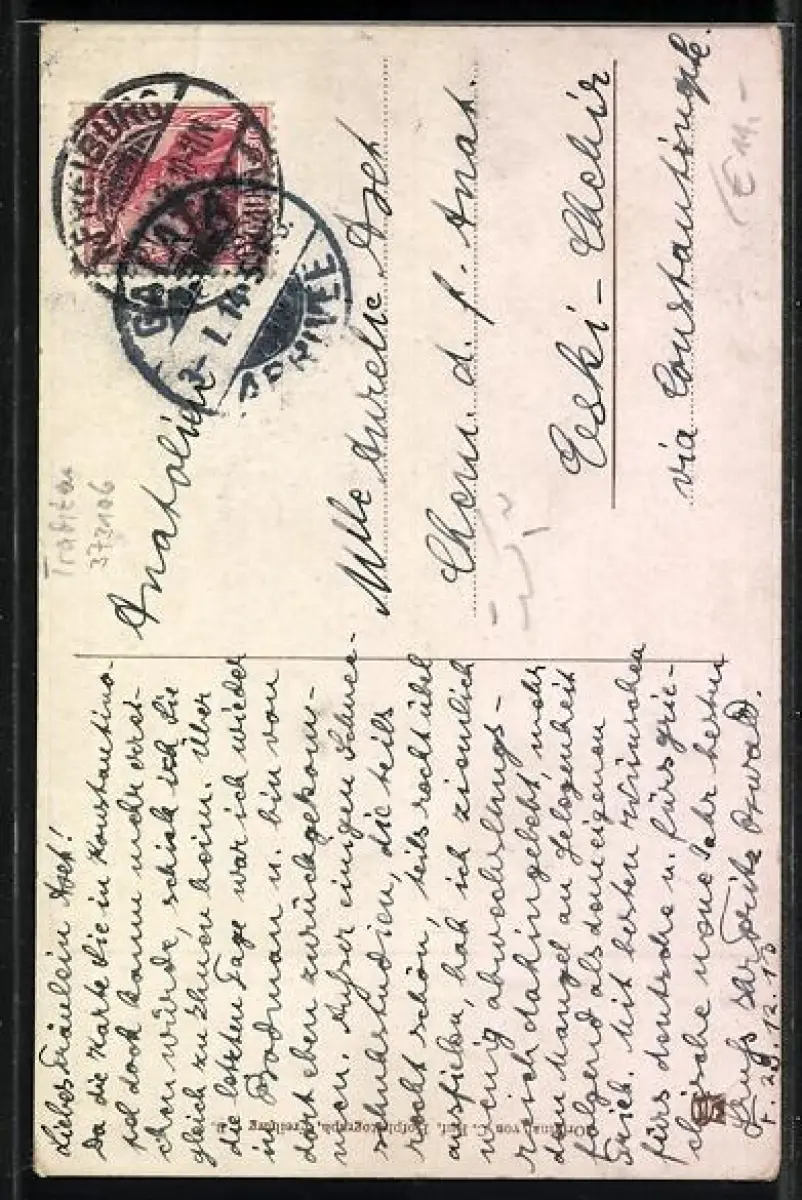 Liebes Fräulein Aseh!
Da die Karte Sie in Konstantino-
pel doch kaum mehr errei-
chen würde, schick ich sie
gleich zu Ihnen heim. Über
die letzten Tage war ich wieder
in Bodman u. bin von
dort eben zurückgekom-
men. Außer einigen Schnee-
schuhstudien, die teils
recht schön, teils recht übel
ausfielen, hab ich ziemlich
wenig abwechslungs-
reich dahingelebt, mehr
dem Mangel an Gelegenheit
folgend als dem eigenen
Trieb. Mit besten Wünschen
fürs deutsche u. fürs grie-
chische neue Jahr besten
Gruß Ihr Fritz Oswald.
F. 29. 12. 13
Anatolien
Mlle Aurelie Aseh
Chem. d. f. Anat.
Eski-Chehir
via Constantinople.
FREIBURG
GALATA
2-1.14
ARRIVEE
372106
€ 14.-
Hofphotograph, Freiburg i. B.